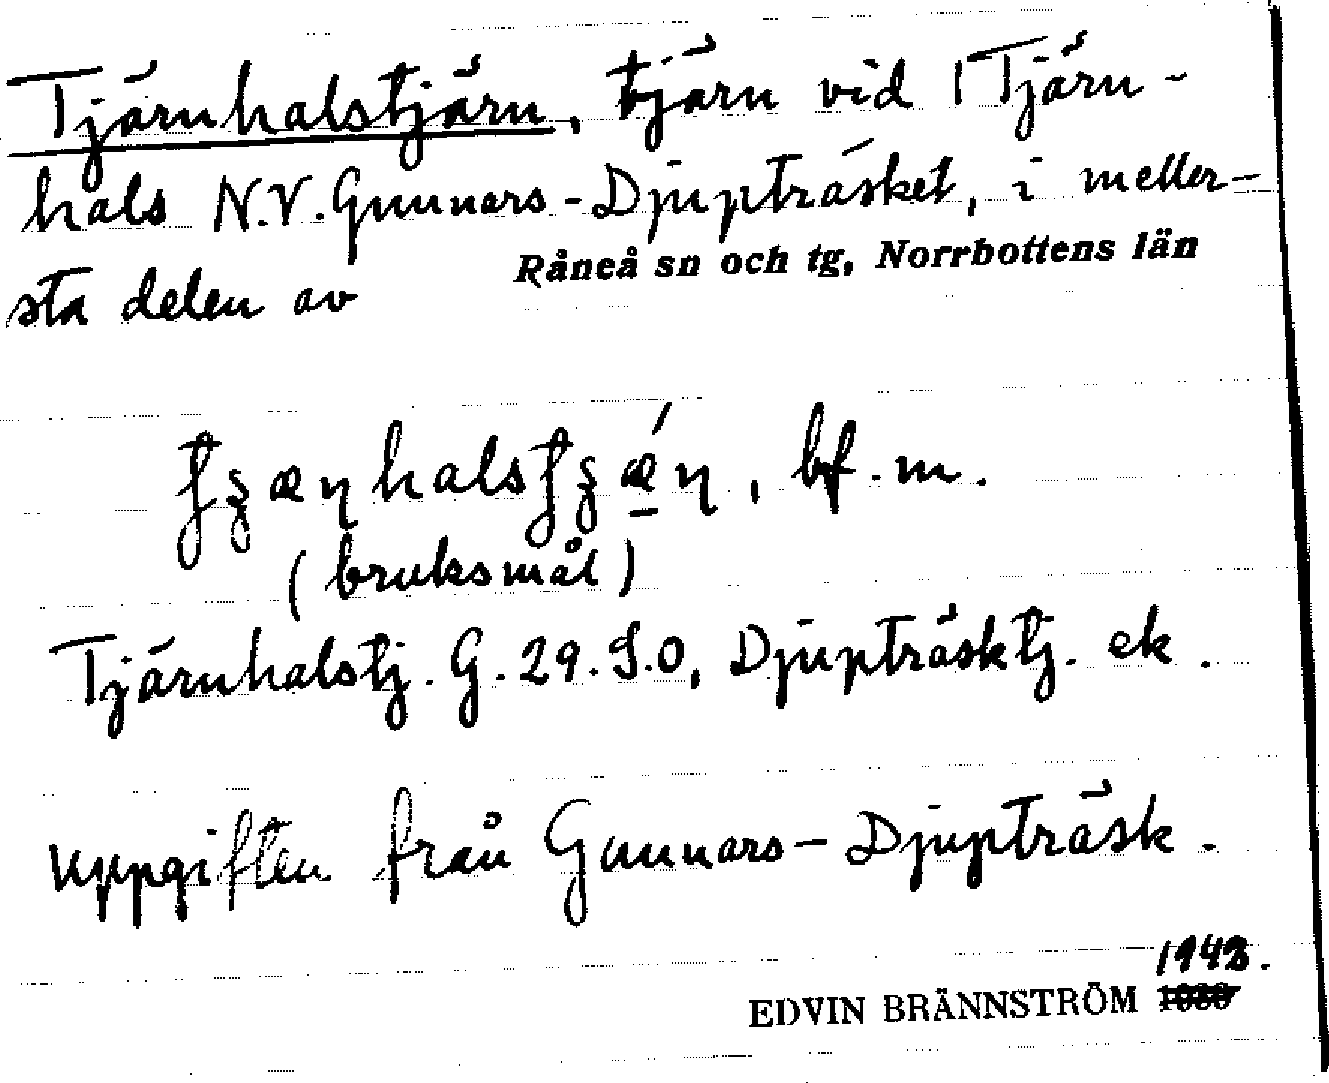 Tjärnhalstjärn, tjärn vid 1 Tjärn-
hals N.V. Gunnars-Djupträsket, i meller-
sta delen av Råneå sn och tg, Norrbottens län
bf. m.
(bruksmål)
Tjärnhalstj. G. 29. S.O, Djupträsktj. ek.
uppgiften från Gunnars-Djupträsk.
1943.
EDVIN BRÄNNSTRÖM